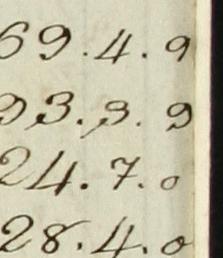 69.4.9
93.3.9
24.7.0
28.4.0